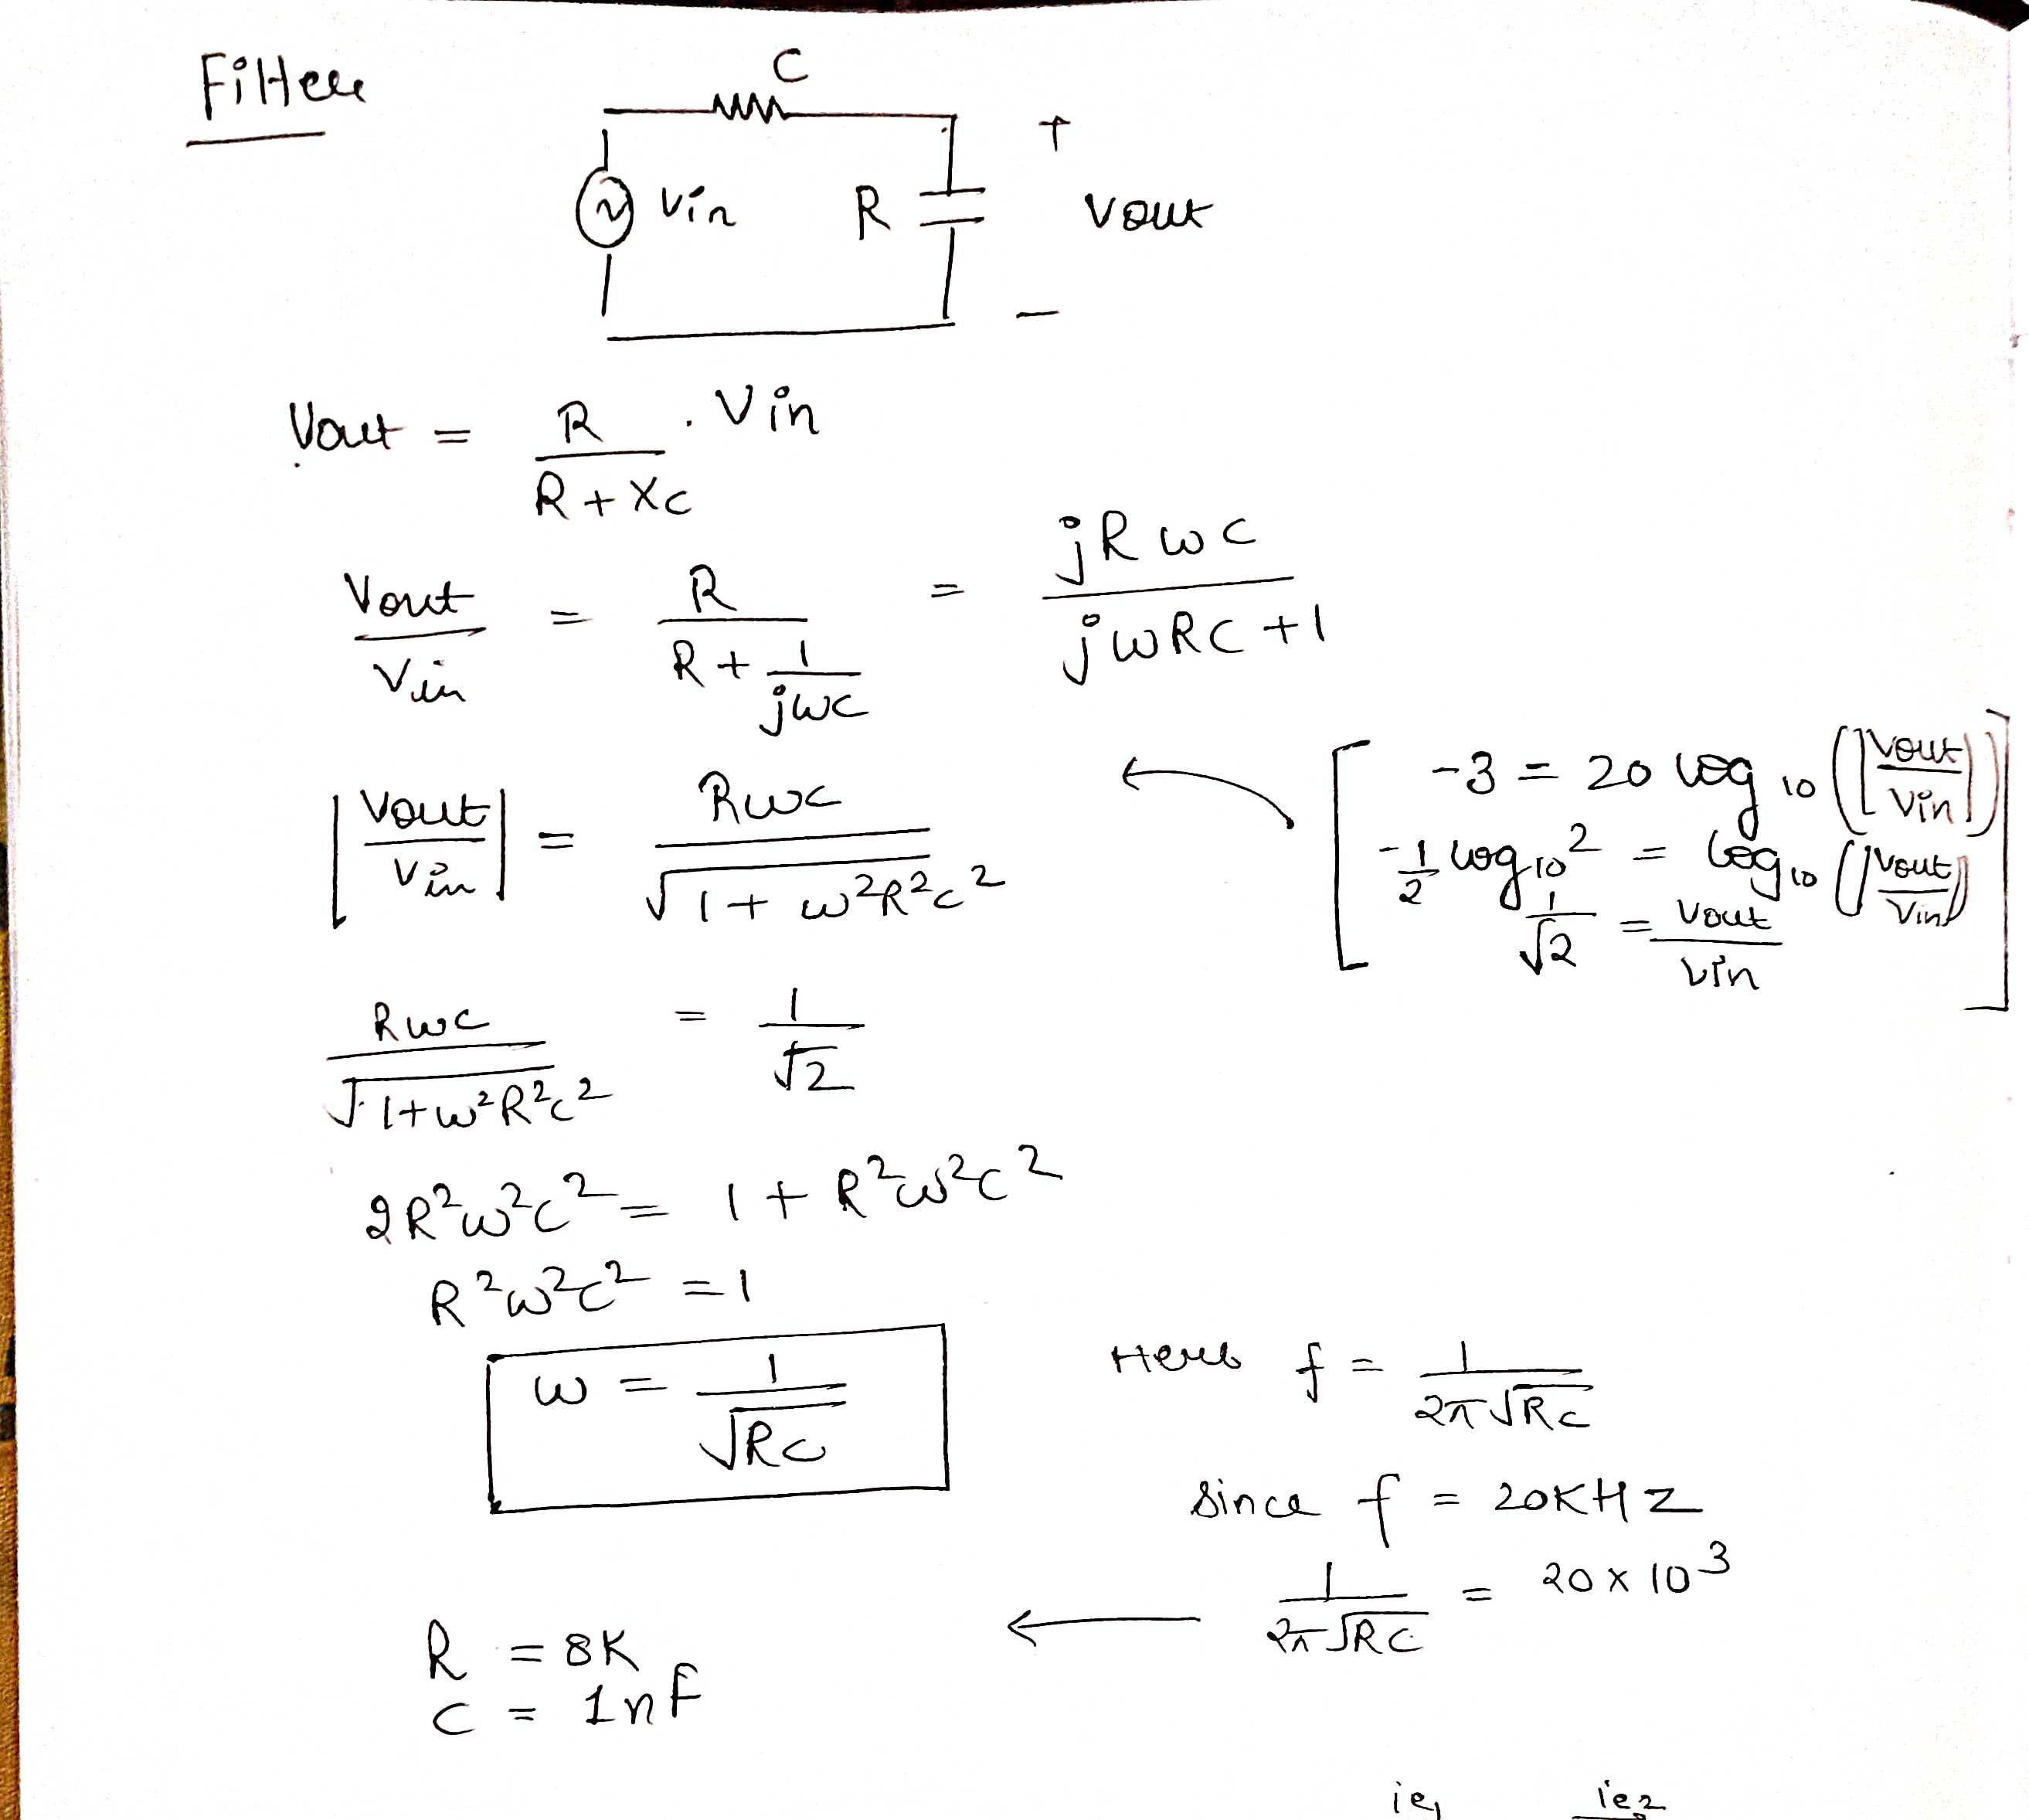 Filter
C
+
Vin R Vout
-
Vout = R / (R + Xc) . Vin
Vout / Vin = R / (R + 1 / jwc) = jRwc / (jwRC + 1)
|Vout / Vin| = Rwc / √(1 + w²R²c²)
[ -3 = 20 log₁₀ (|Vout / Vin|)
-1/2 log₁₀ 2 = log₁₀ (|Vout / Vin|)
1 / √2 = Vout / Vin ]
Rwc / √(1 + w²R²c²) = 1 / √2
2R²w²c² = 1 + R²w²c²
R²w²c² = 1
w = 1 / √RC
Here f = 1 / 2π√RC
Since f = 20KHZ
1 / 2π√RC = 20 x 10³
R = 8K
C = 1nF
ie₁ ie₂